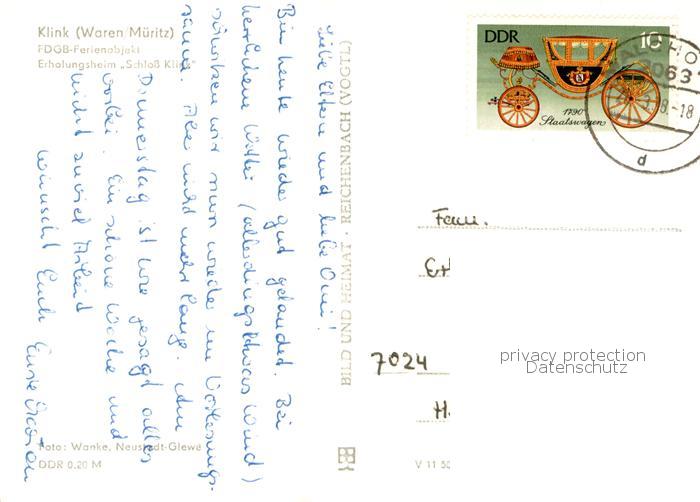 Klink (Waren/Müritz)
FDGB-Ferienobjekt
Erholungsheim „Schloß Klink"
Liebe Eltern und liebe Omi!
Bin heute wieder gut gelandet. Bei
herrlichem Wetter (allerdings etwas Wind)
schwitzen wir nun wieder im Vorlesungs-
saal. Aber nicht mehr lange. Am
Donnerstag ist wie gesagt alles
vorbei. Ein schöne Woche und
nicht zuviel Arbeit
wünscht Euch Eure
Foto: Wanke, Neustadt-Glewe
DDR 0.20 M
BILD UND HEIMAT · REICHENBACH (VOGTL)
V 11 50
DDR
10
1790
Staatswagen
2063
8-18
d
Fam.
7024
H.
privacy protection
Datenschutz